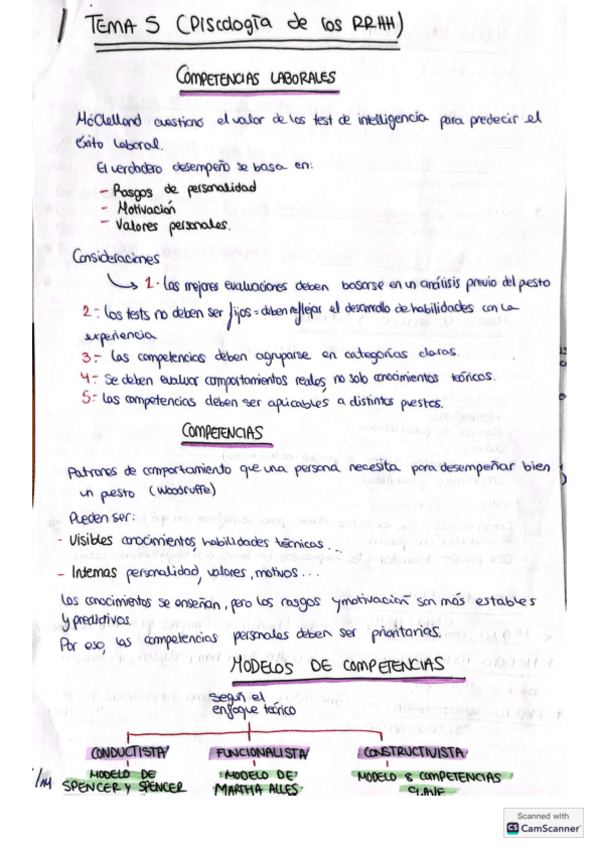 TEMA 5 (Piscología de los RRHH)
COMPETENCIAS LABORALES
McClelland cuestiona el valor de los test de inteligencia para predecir el
éxito laboral.
El verdadero desempeño se basa en:
- Rasgos de personalidad
- Motivación
- Valores personales.
Consideraciones
1- Las mejores evaluaciones deben basarse en un análisis previo del pesto
2- Los tests no deben ser fijos = deben reflejar el desarrollo de habilidades con la
experiencia
3- Las competencias deben agruparse en categorías claras.
4- Se deben evaluar comportamientos reales, no solo conocimientos teóricos.
5- Las competencias deben ser aplicables a distintos puestos.
COMPETENCIAS
Patrones de comportamiento que una persona necesita para desempeñar bien
un puesto (Woodruffe)
Pueden ser:
- Visibles conocimientos habilidades técnicas...
- Internas personalidad, valores, motivos...
Los conocimientos se enseñan, pero los rasgos y motivación son más estables
y predictivas
Por eso, las competencias personales deben ser prioritarias.
MODELOS DE COMPETENCIAS
Según el
enfoque teórico
CONDUCTISTA FUNCIONALISTA CONSTRUCTIVISTA
MODELO DE MODELO DE MODELO 8 COMPETENCIAS
SPENCER Y SPENCER MARTHA ALLES CLAVE
Scanned with
CS CamScanner